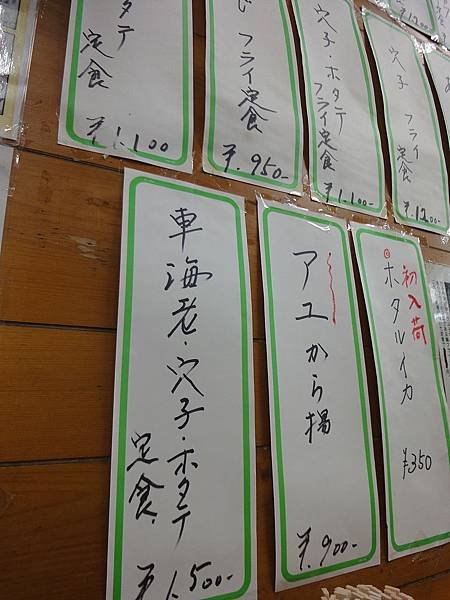 タテ
定食
¥1,100
じ フライ定食
¥950-
穴子・ホタテ
フライ定食
¥1,100-
穴子 フライ
定食
¥1200-
車海老・穴子・ホタテ
定食
¥1,500-
アユから揚
¥900-
初入荷
ホタルイカ
¥350